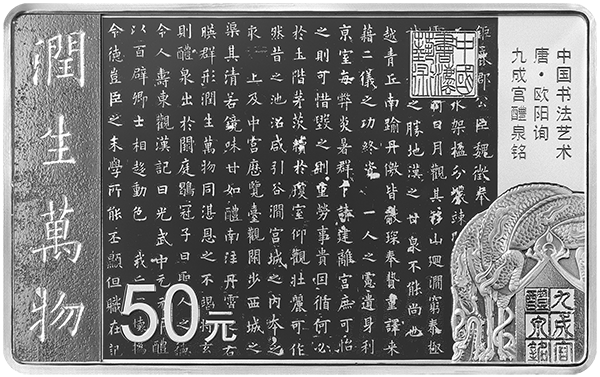 潤生萬物
中国书法艺术
唐·欧阳询
九成宫醴泉铭
中國書法藝術
鉅鹿郡公臣魏徵奉
架楹分巖竦
日月觀其移山迴澗窮泰極
之勝地漢之甘泉不能尚也
越青丘南踰丹徼皆獻琛奉贄重譯來
藉二儀之功終資 一人之慮遺身利
京室每弊炎暑群下請建離宮庶可
之則可惜毀之則重勞事貴因循何必
於玉階茅茨續於瓊室仰觀壯麗可作
然昔之池沼咸引谷澗宮城之內本乏
求 上及中宮歷覽臺觀閑步西城之
渠其清若鏡味甘如醴南注丹霄之右
映群形潤生萬物同湛恩之不竭將玄
則醴泉出於闕庭鶡冠子曰聖人
令人壽東觀漢記曰光武中元元
以百辟卿士相趨動色 我
令德豈臣之末學所能丕顯但職在記
50元
九成宮
醴泉銘